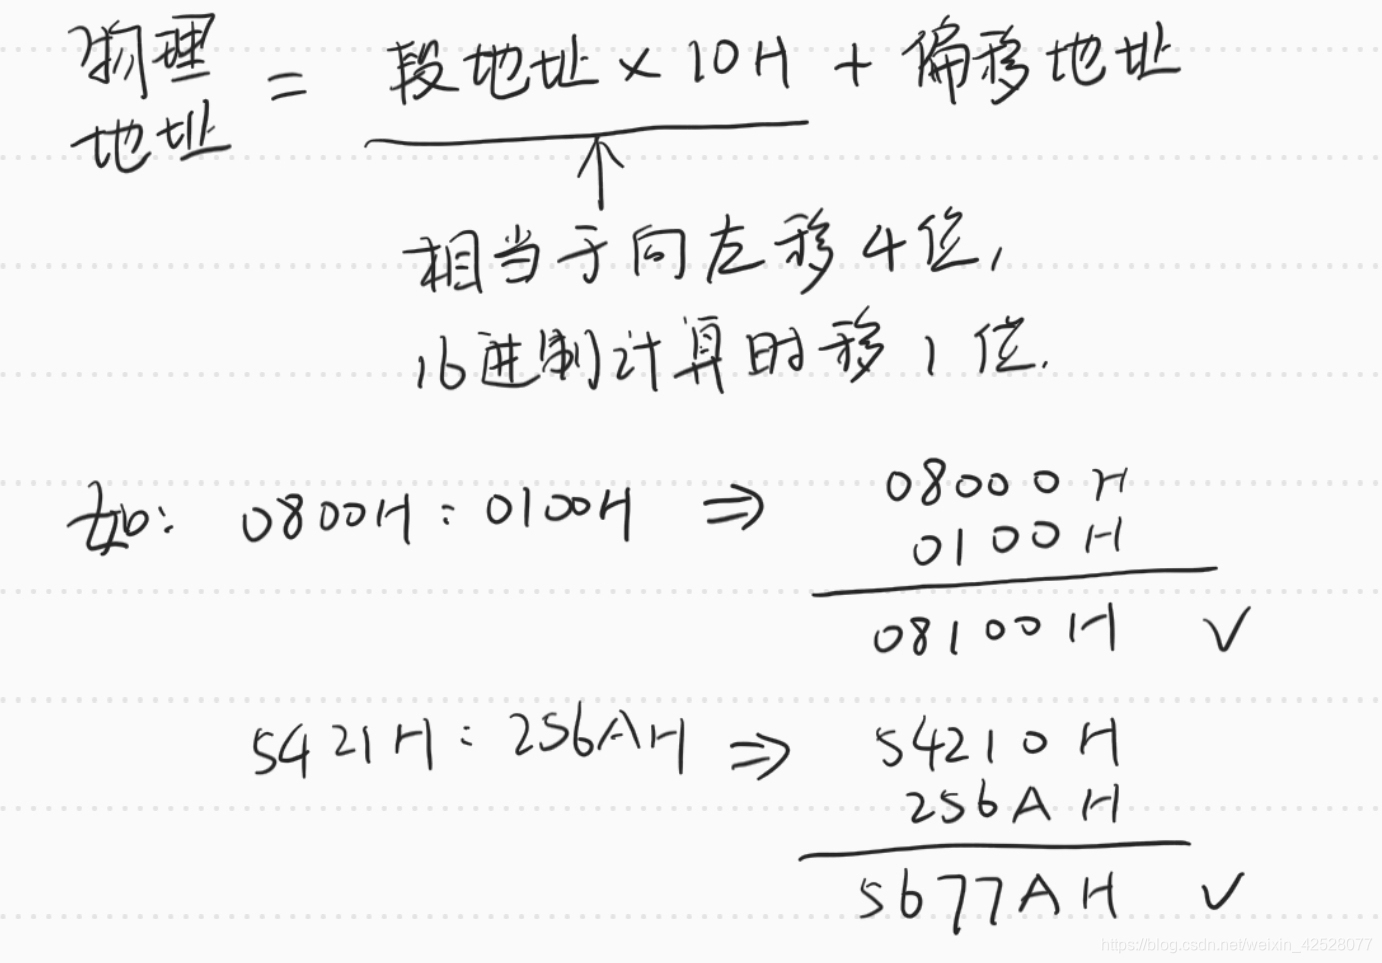 物理地址 = 段地址 × 10H + 偏移地址
相当于向左移4位,
16进制计算时移1位.
如: 0800H : 0100H ⇒ 08000H
0100H
08100H ✓
5421H : 256AH ⇒ 54210H
256AH
5677AH ✓
https://blog.csdn.net/weixin_42528077